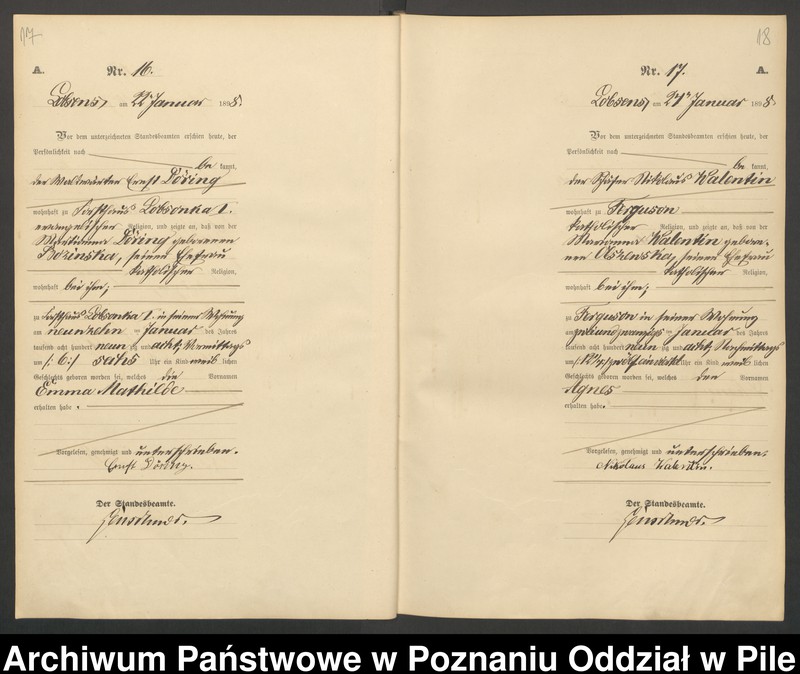 17
A.
Nr. 16.
Lobsens, am 22ten Januar 1898.
Vor dem unterzeichneten Standesbeamten erschien heute, der
Persönlichkeit nach
be kannt,
der Ernst Döring
wohnhaft zu Forsthaus Lobsonka I.
evangelischer Religion, und zeigte an, daß von der
Döring geborenen
seiner Ehefrau
katholischer Religion,
wohnhaft bei ihm;
zu Forsthaus Lobsonka I. in seiner Wohnung
am neunzehn ten Januar des Jahres
tausend acht hundert neun zig und acht, Vormittags
um /:6:/ sechs Uhr ein Kind weib lichen
Geschlechts geboren worden sei, welches die Vornamen
Emma Mathilde
erhalten habe.
Vorgelesen, genehmigt und unterschrieben.
Ernst Döring.
Der Standesbeamte.
18
Nr. 17.
A.
Lobsens, am Januar 1898.
Vor dem unterzeichneten Standesbeamten erschien heute, der
Persönlichkeit nach
be kannt,
der Schäfer Nikolaus Walentin
wohnhaft zu Ferguson
katholischer Religion, und zeigte an, daß von der
Marianna Walentin gebore-
nen seiner Ehefrau
katholischer Religion,
wohnhaft bei ihm;
zu Ferguson in seiner Wohnung
am zweiundzwanzigsten Januar des Jahres
tausend acht hundert neun zig und acht, Nachmittags
um Uhr ein Kind weib lichen
Geschlechts geboren worden sei, welches den Vornamen
Agnes
erhalten habe.
Vorgelesen, genehmigt und unterschrieben.
Nikolaus Walentin.
Der Standesbeamte.
Archiwum Państwowe w Poznaniu Oddział w Pile